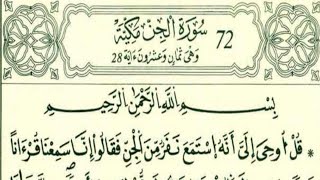 72 سُورَةُ الْجِنِّ مَكِّيَّة
وَهْىَ ثَمَانٍ وَعَشْرُونَ ءَايَة 28
بِسْمِ اللَّهِ الرَّحْمَٰنِ الرَّحِيمِ
قُلُ اوحِىَ إِلَىَّ أَنَّهُ اِسْتَمَعَ نَفَرٌ مِّنَ الْجِنِّ فَقَالُوٓاْ إِنَّا سَمِعْنَا قُرْءَاناً